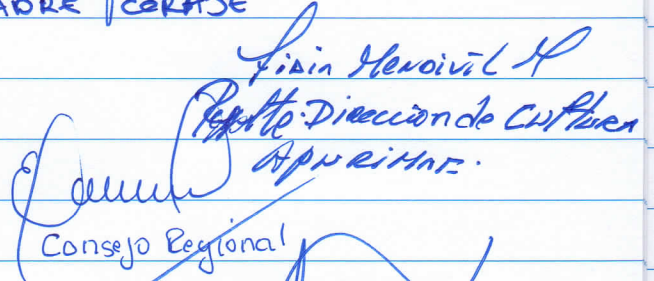 MADRE CORAJE
Fidin Mendivil M
Rpstte. Direccion de Cultura
APURIMAC.
Consejo Regional